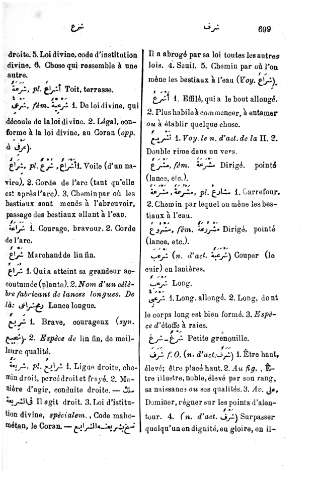 شرع شرف 609
droite. 5. Loi divine, code d'institution
divine. 6. Chose qui ressemble à une
autre.
شراع, pl. أشراع Toit, terrasse.
شرعي, fém. شرعية 1. De loi divine, qui
découle de la loi divine. 2. Légal, con-
forme à la loi divine, au Coran (opp.
à عرفي).
شراع, pl. شرع, أشرعة 1. Voile (d'un na-
vire). 2. Corde de l'arc (tant qu'elle
est après l'arc). 3. Chemin par où les
bestiaux sont menés à l'abreuvoir,
passage des bestiaux allant à l'eau.
1. Courage, bravour. 2. Corde
de l'arc.
شراع Marchand de lin fin.
شراعي 1. Qui a atteint sa grandeur ac-
coutumée (plante). 2. Nom d'un célè-
bre fabricant de lances longues. De
là Lance longue.
شريع 1. Brave, courageux (syn.
شجيع). 2. Espèce de lin fin, de meil-
leure qualité.
شريعة, pl. شرايع 1. Ligne droite, che-
min droit, percé droit et frayé. 2. Ma-
nière d'agir, conduite droite. —
Il agit droit. 3. Loi d'institu-
tion divine, spécialem. Code maho-
métan, le Coran —
Il a abrogé par sa loi toutes les autres
lois. 4. Seuil. 5. Chemin par où l'on
mène les bestiaux à l'eau (Voy. شراع).
أشرع 1. Effilé, qui a le bout allongé.
2. Plus habile à commencer, à entamer
ou à établir quelque chose.
تشريع 1. Voy. le n. d'act. de la II. 2.
Double rime dans un vers.
مشرع, fém. مشرعة Dirigé, pointé
(lance, etc.).
مشرعة, مشرعة, pl. مشارع 1. Carrefour.
2. Chemin par lequel on mène les bes-
tiaux à l'eau.
مشروع, fém. مشروعة Dirigé, pointé
(lance, etc.).
(n. d'act. شرعبة) Couper (le
cuir) en lanières.
شرعب Long.
شرعبي 1. Long, allongé. 2. Long, dont
le corps long est bien formé. 3. Espè-
ce d'étoffe à raies.
Petite grenouille.
شرف f. O. (n. d'act. شرف) 1. Être haut,
élevé; être placé haut. 2. Au fig. Ê-
tre illustre, noble, élevé par son rang,
sa naissance ou ses qualités. 3. Ac. على
Dominer, régner sur les points d'alen-
tour. 4. (n. d'act. شرف) Surpasser
quelqu'un en dignité, en gloire, en il-